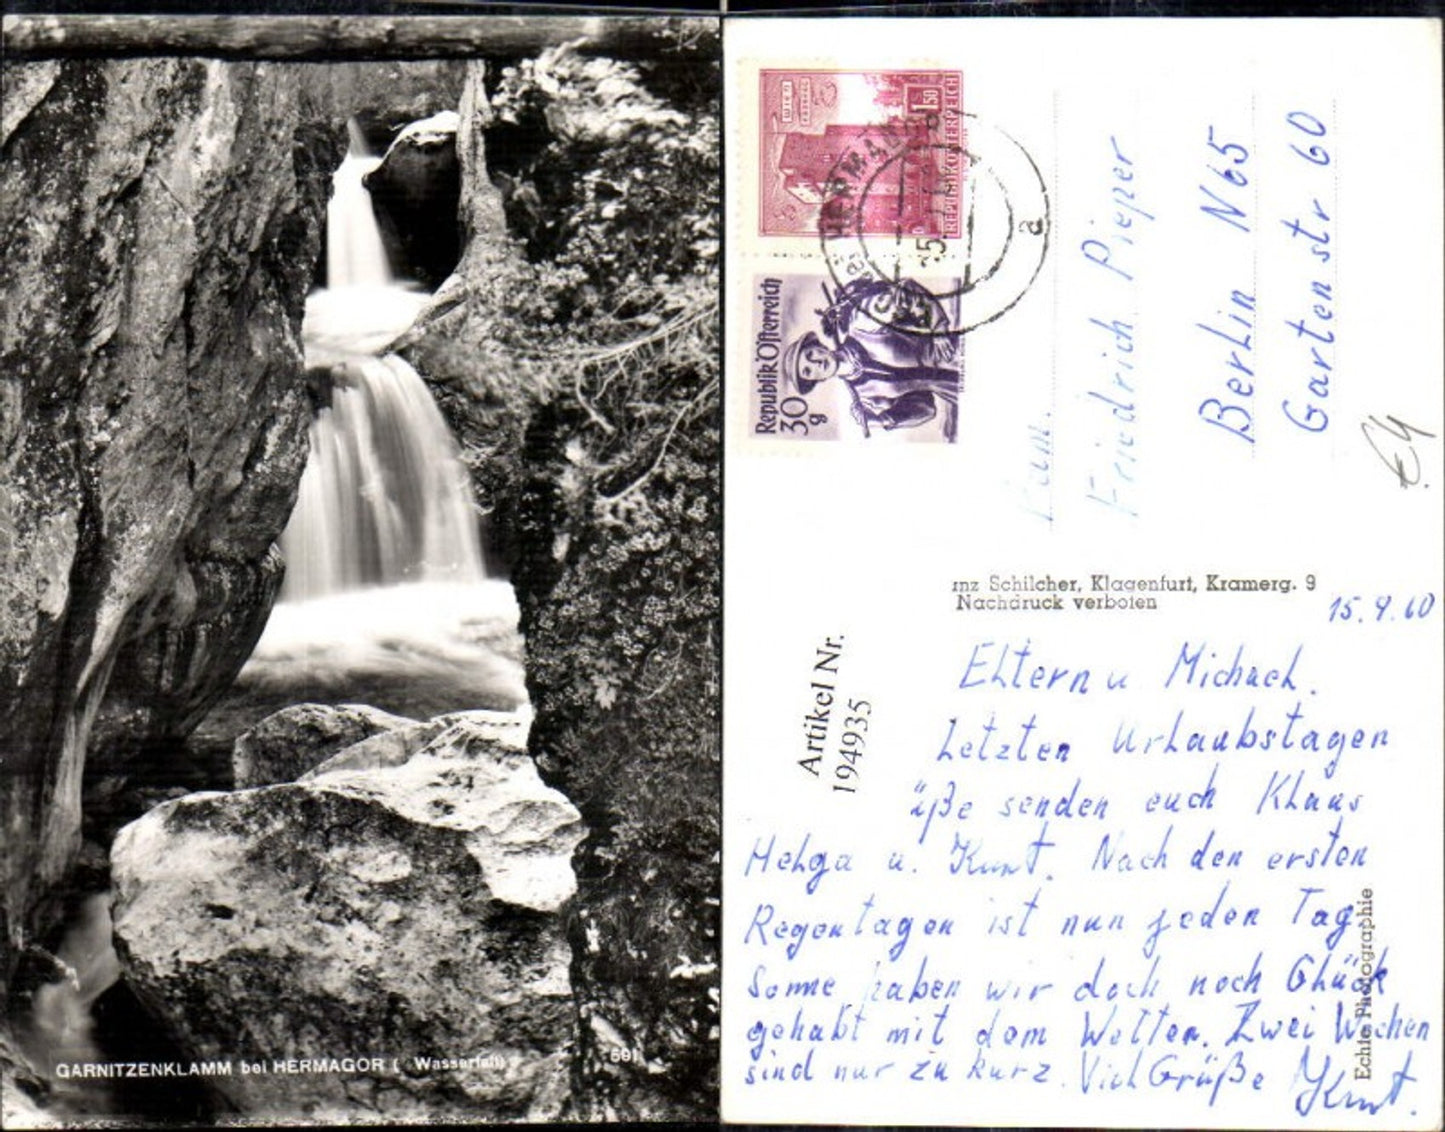 GARNITZENKLAMM bei HERMAGOR ( Wasserfall)
591
WIEN
1.50
REPUBLIK ÖSTERREICH
HERMAGOR
a
Republik Österreich
30
g
Fam.
Friedrich Pieper
Berlin N65
Gartenstr 60
€4
nz Schilcher, Klagenfurt, Kramerg. 9
Nachdruck verboten
Artikel Nr.
194935
Echte Photographie
15.9.60
Eltern u Michael.
Letzten Urlaubstagen
üße senden euch Klaus
Helga u. Kurt. Nach den ersten
Regentagen ist nun jeden Tag
Sonne haben wir doch noch Glück
gehabt mit dem Wetter. Zwei Wochen
sind nur zu kurz. Viel Grüße Kurt.